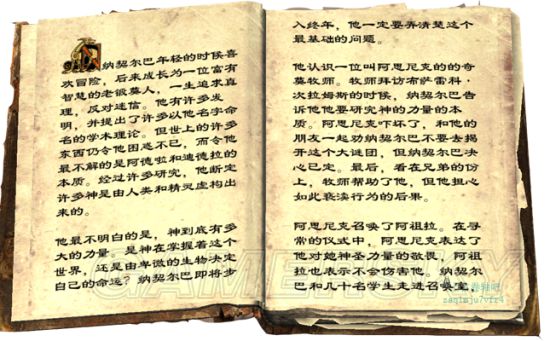 纳契尔巴年轻的时候喜
欢冒险，后来成长为一位富有
智慧的老骸莫人，一生追求真
理，反对迷信。他有许多发
明，并提出了许多以他名字命
名的学术理论。但世上的许多
东西仍令他困惑不已，而令他
最不解的是阿德啦和迪德拉的
本质。经过许多研究，他断定
许多神是由人类和精灵虚构出
来的。
他最不明白的是，神到底有多
大的力量。是神在掌握着这个
世界，还是由卑微的生物决定
自己的命运？纳契尔巴即将步
入终年，他一定要弄清楚这个
最基础的问题。
他认识一位叫阿思尼克的的奇
莫牧师。牧师拜访布萨雷科·
次拉姆斯的时候，纳契尔巴告
诉他他要研究神的力量的本
质。阿思尼克吓坏了，和他的
朋友一起劝纳契尔巴不要去揭
开这个大谜团，但纳契尔巴决
心已定。最后，看在兄弟的份
上，牧师帮助了他，但他担心
如此亵渎行为的后果。
阿思尼克召唤了阿祖拉。在寻
常的仪式中，阿思尼克表达了
他对她神圣力量的敬畏，阿祖
拉也表示不会伤害他。纳契尔
巴和几十名学生走进召唤室，
GAMERSKY
saqimju7vfr4